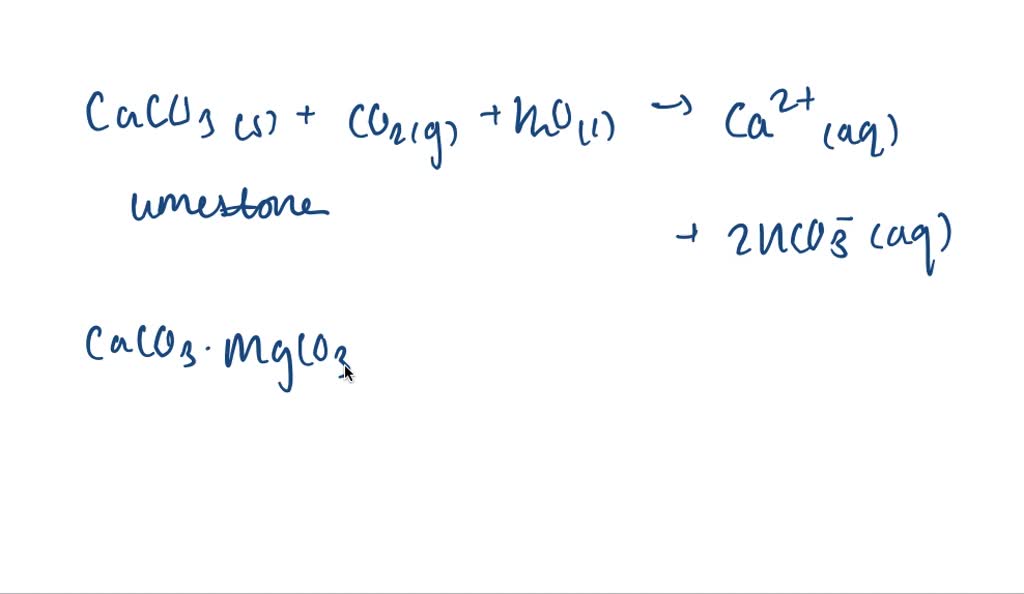 CaCO₃ (s) + CO₂(g) + H₂O(l) → Ca²⁺ (aq)
limestone
+ 2HCO₃⁻ (aq)
CaCO₃ · MgCO₃